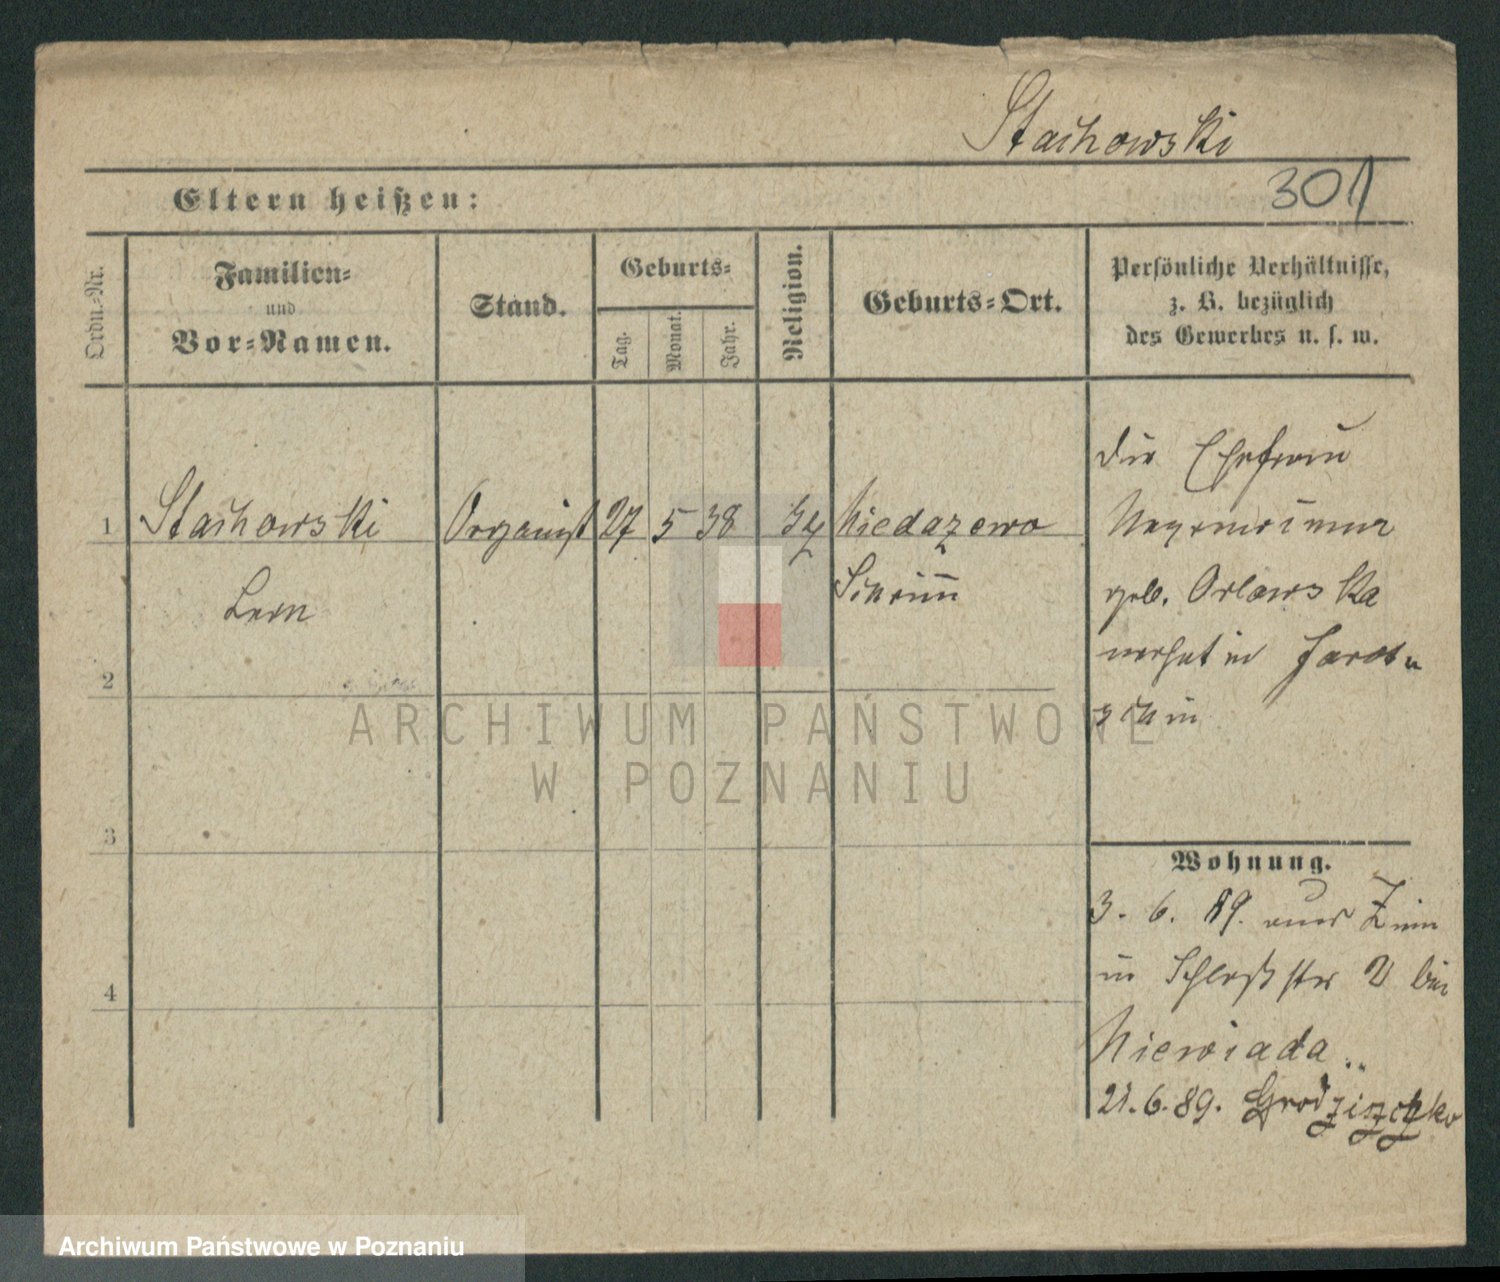 Stachowski
301
Eltern heißen:
Ordn.-Nr.
Familien-
und
Vor-Namen.
Stand.
Geburts-
Tag.
Monat.
Jahr.
Religion.
Geburts-Ort.
Persönliche Verhältnisse,
z. B. bezüglich
des Gewerbes u. s. w.
1 Stachowski Organist 27 5 38
Schrimm
Leon
2
3
4
Die Ehefrau
geb. Orlowska
wohnt in
Wohnung.
3. 6. 89. aus
in Schloßstr 2 bei
Niewiada
21. 6. 89.
ARCHIWUM PAŃSTWOWE
W POZNANIU
Archiwum Państwowe w Poznaniu